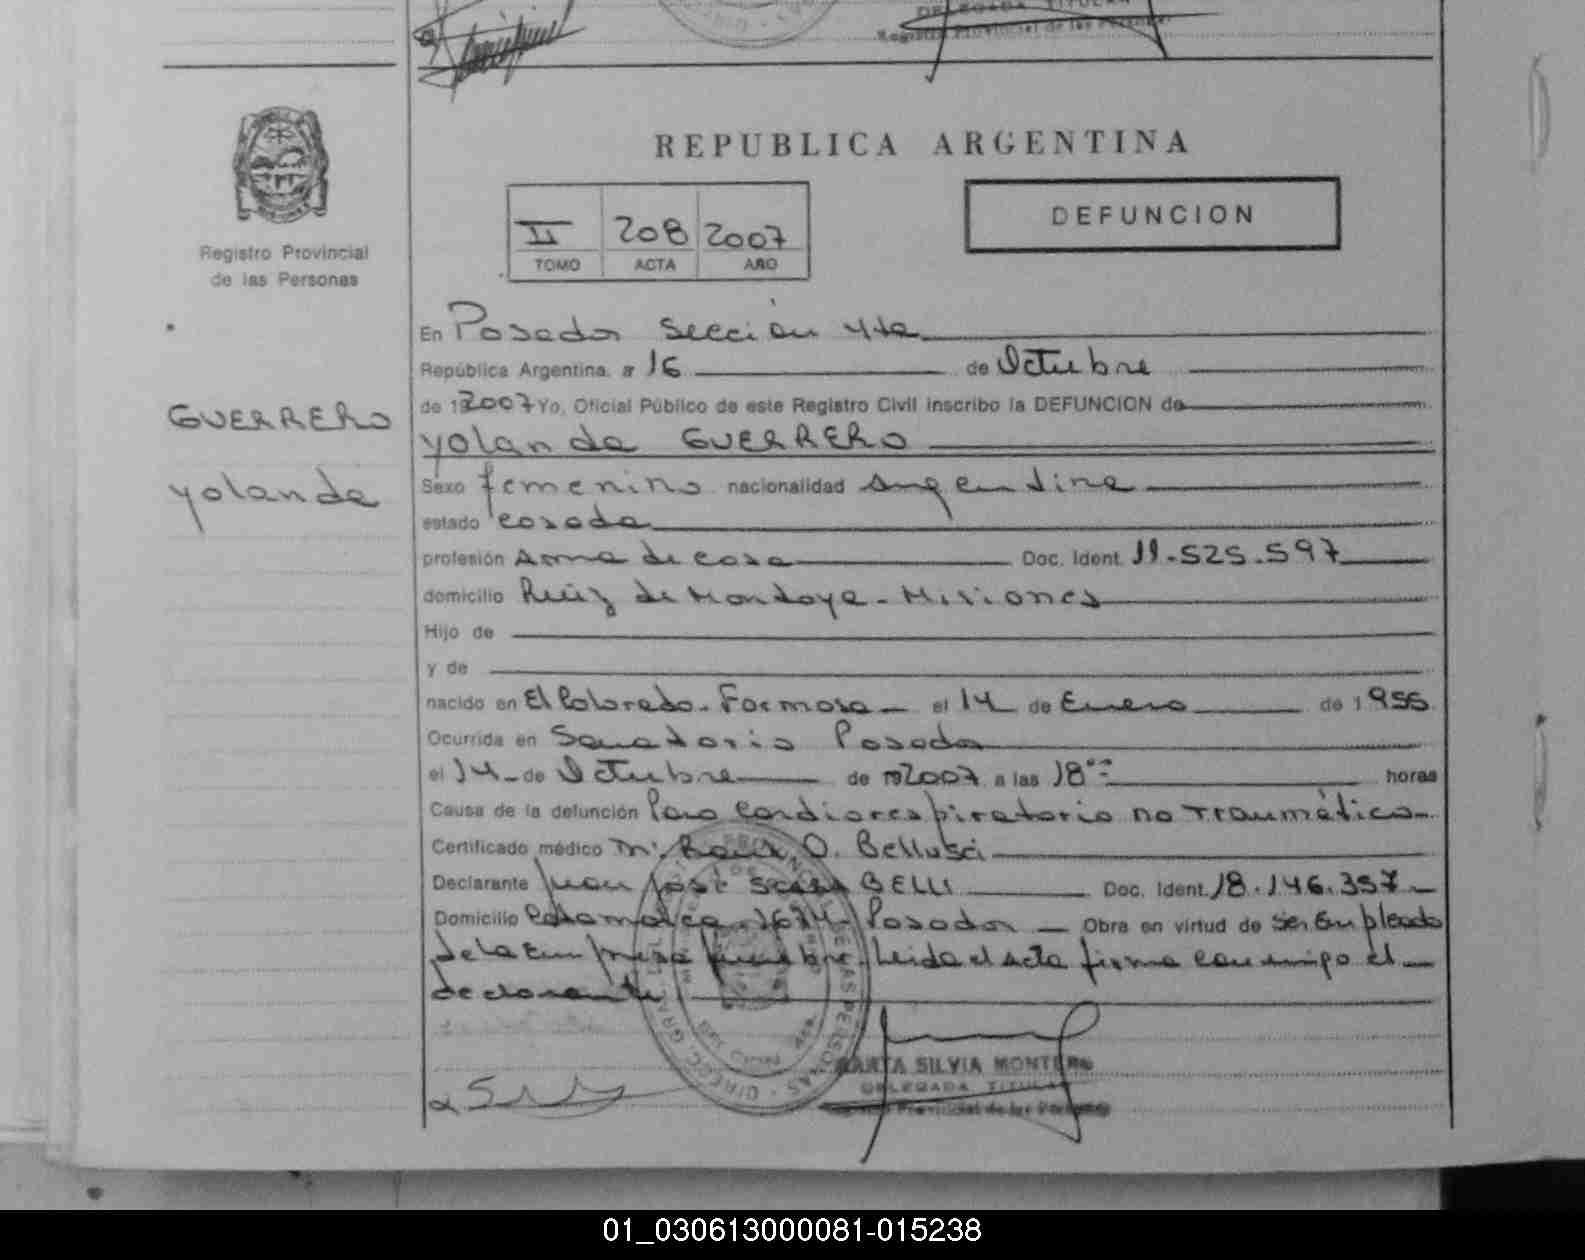 DELEGADA TITULAR
Registro Provincial de las Personas
REPUBLICA ARGENTINA
DEFUNCION
II 208 2007
TOMO ACTA AÑO
Registro Provincial
de las Personas
En Posadas sección 4ta
República Argentina, a 16 de Octubre
de 2007 Yo, Oficial Público de este Registro Civil inscribo la DEFUNCION de
GUERRERO
yolanda
yolanda GUERRERO
Sexo femenino nacionalidad argentina
estado casada
profesión ama de casa Doc. Ident. 11.525.597
domicilio Ruiz de Montoya - Misiones
Hijo de
y de
nacido en El Colorado - Formosa el 14 de Enero de 1955
Ocurrida en Sanatorio Posadas
el 14 de Octubre de 2007 a las 18 horas
Causa de la defunción Paro Cardiorespiratorio no Traumático
Certificado médico O. Bellusci
Declarante Juan José BELLI Doc. Ident. 18.146.357
Domicilio Catamarca Posadas Obra en virtud de ser Empleado
de la Empresa funebre. Leida el acta firma conmigo el
declarante
MARTA SILVIA MONTERO
DELEGADA TITULAR
Registro Provincial de las Personas
01_030613000081-015238